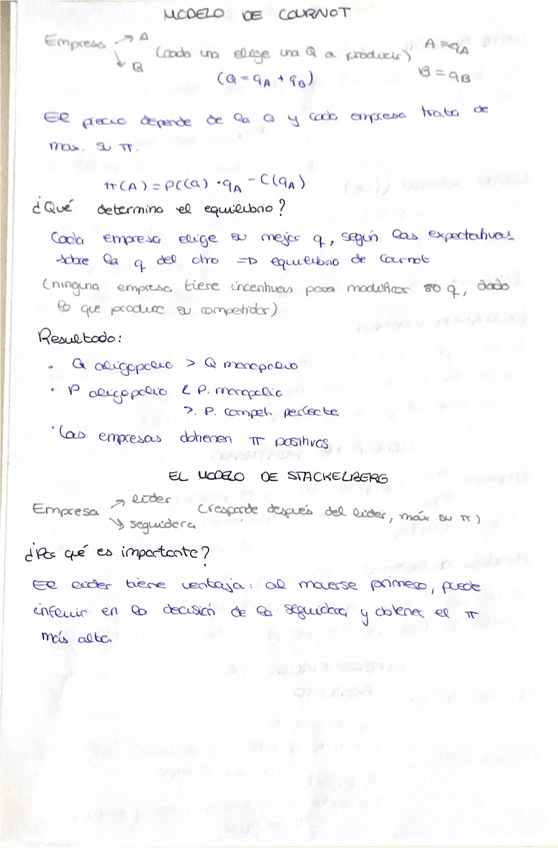 MODELO DE COURNOT
Empresa → A (cada una elige una Q a producir) A = qA
↘ B (Q = qA + qB) B = qB
El precio depende de la Q y cada empresa trata de
max. su π.
π(A) = P(Q) · qA - C(qA)
¿Qué determina el equilibrio?
Cada empresa elige su mejor q, según las expectativas
sobre la q del otro => equilibrio de Cournot
(ninguna empresa tiene incentivos para modificar su q, dado
lo que produce su competidor)
Resultado:
· Q oligopolio > Q monopolio
· P oligopolio < P. monopolio
> P. compet. perfecta
· Las empresas obtienen π positivos
EL MODELO DE STACKELBERG
Empresa → líder
↘ seguidora (responde después del líder, máx su π)
¿Por qué es importante?
El líder tiene ventaja: al moverse primero, puede
influir en la decisión de la seguidora y obtener el π
más alto.